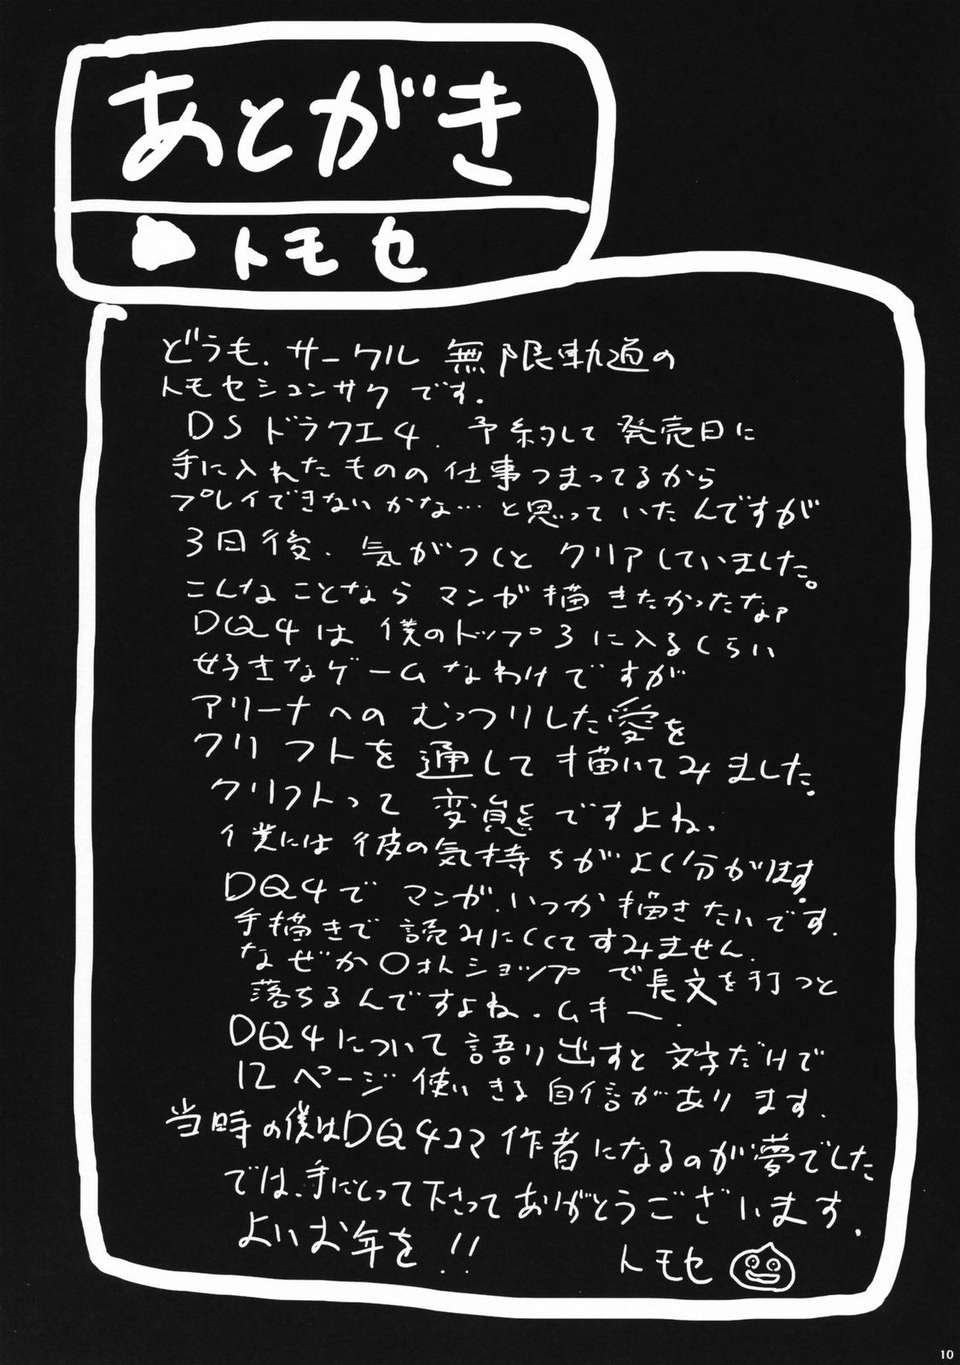 あとがき
トモセ
どうも、サークル 無限軌道の
トモセシュンサクです。
DSドラクエ4、予約して発売日に
手に入れたものの仕事つまってるから
プレイできないかな…と思っていたんですが
3日後、気がつくとクリアしていました。
こんなことなら マンガ描きたかったなァ
DQ4は僕のトップ3に入るくらい
好きなゲームなわけですが
アリーナへのむっつりした愛を
クリフトを通して描いてみました。
クリフトって変態ですよね、
僕には彼の気持ちがよく分かります。
DQ4でマンガ、いつか描きたいです。
手描きで読みにくくてすみません、
なぜか〇ォトショップで長文を打つと
落ちるんですよね。ムキー、
DQ4について語り出すと文字だけで
12ページ使いきる自信があります。
当時の僕はDQ4コマ作者になるのが夢でした
では、手にとって下さってありがとうございます。
よいお年を!!
トモセ
10